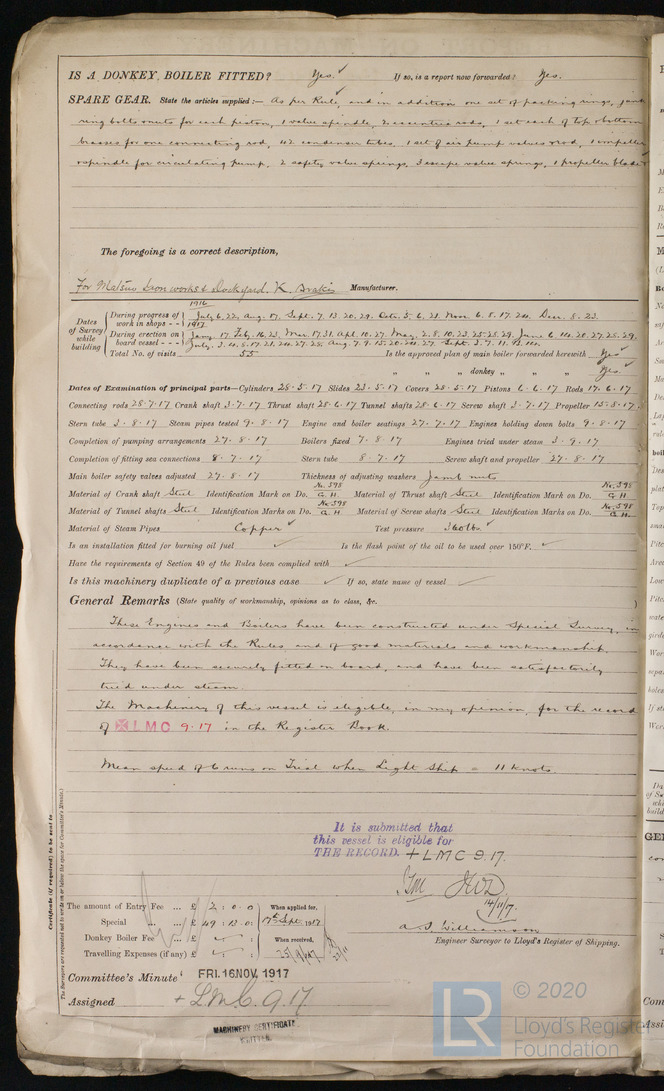 IS A DONKEY BOILER FITTED? Yes. ✓ If so, is a report now forwarded? Yes.
SPARE GEAR. State the articles supplied:— As per Rule, and in addition one set of packing rings, junk
ring bolts & nuts for each piston, 1 valve spindle, 2 eccentric rods, 1 set each of top & bottom
brasses for one connecting rod, 42 condenser tubes, 1 set of air pump valves & rod, 1 impeller
& spindle for circulating pump, 2 safety valve springs, 3 escape valve springs, 1 propeller blade
The foregoing is a correct description,
For Matsuo Ironworks & Dockyard. K. Manufacturer.
Dates of Survey while building
1916
During progress of work in shops - - July 6, 22, Aug. 17, Sept. 7. 13. 20. 29. Octr. 5. 6. 21. Nov. 6. 8. 17. 24. Dec. 8. 23.
1917
During erection on board vessel - - - Jany. 17. Feb. 16. 23. Mar. 17. 31. Apl. 10. 27. May. 2. 8. 10. 23. 25. 28. 29. June 6. 20. 27. 28. 29.
July. 3. 4. 8. 17. 21. 24. 27. 28. Aug. 7. 9. 15. 20. 27. Sept. 3. 7. 11.
Total No. of visits 55 Is the approved plan of main boiler forwarded herewith Yes ✓
" " " donkey " " " Yes ✓
Dates of Examination of principal parts—Cylinders 28-5-17 Slides 23-5-17 Covers 28-5-17 Pistons 6-6-17 Rods 17-6-17
Connecting rods 28-7-17 Crank shaft 3-7-17 Thrust shaft 28-6-17 Tunnel shafts 28-6-17 Screw shaft 3-7-17 Propeller 15-8-17
Stern tube 3-8-17 Steam pipes tested 9-8-17 Engine and boiler seatings 27-7-17 Engines holding down bolts 9-8-17
Completion of pumping arrangements 27-8-17 Boilers fixed 7-8-17 Engines tried under steam 3-9-17
Completion of fitting sea connections 8-7-17 Stern tube 8-7-17 Screw shaft and propeller 27-8-17
Main boiler safety valves adjusted 27-8-17 Thickness of adjusting washers Jamb nuts
Material of Crank shaft Steel Identification Mark on Do. No. 598 G.H. Material of Thrust shaft Steel Identification Mark on Do. No. 598 G.H.
Material of Tunnel shafts Steel Identification Marks on Do. No. 598 G.H. Material of Screw shafts Steel Identification Marks on Do. No. 598 G.H.
Material of Steam Pipes Copper ✓ Test pressure 360 lbs. ✓
Is an installation fitted for burning oil fuel ✓ Is the flash point of the oil to be used over 150°F. ✓
Have the requirements of Section 49 of the Rules been complied with ✓
Is this machinery duplicate of a previous case ✓ If so, state name of vessel ✓
General Remarks (State quality of workmanship, opinions as to class, &c.)
These Engines and Boilers have been constructed under Special Survey, in
accordance with the Rules and of good materials and workmanship.
They have been securely fitted on board, and have been satisfactorily
tried under steam.
The Machinery of this vessel is eligible, in my opinion, for the record
of ✠ LMC 9.17 in the Register Book.
Mean speed of 6 runs on Trial when Light Ship = 11 knots.
It is submitted that
this vessel is eligible for
THE RECORD. + LMC 9.17.
14/11/17
A. S. Williamson
Engineer Surveyor to Lloyd's Register of Shipping.
Certificate (if required) to be sent to
The Surveyors are requested not to write on or below the space for Committee's Minute.
The amount of Entry Fee ... £ 2 : 0 : 0 When applied for,
Special ... £ 49 : 13 : 0 : 17th Sept. 1917
Donkey Boiler Fee ... £ : When received,
Travelling Expenses (if any) £ :
Committee's Minute FRI. 16 NOV. 1917
Assigned + LMC. 9.17
MACHINERY CERTIFICATE
WRITTEN
LR © 2020
Lloyd's Register
Foundation